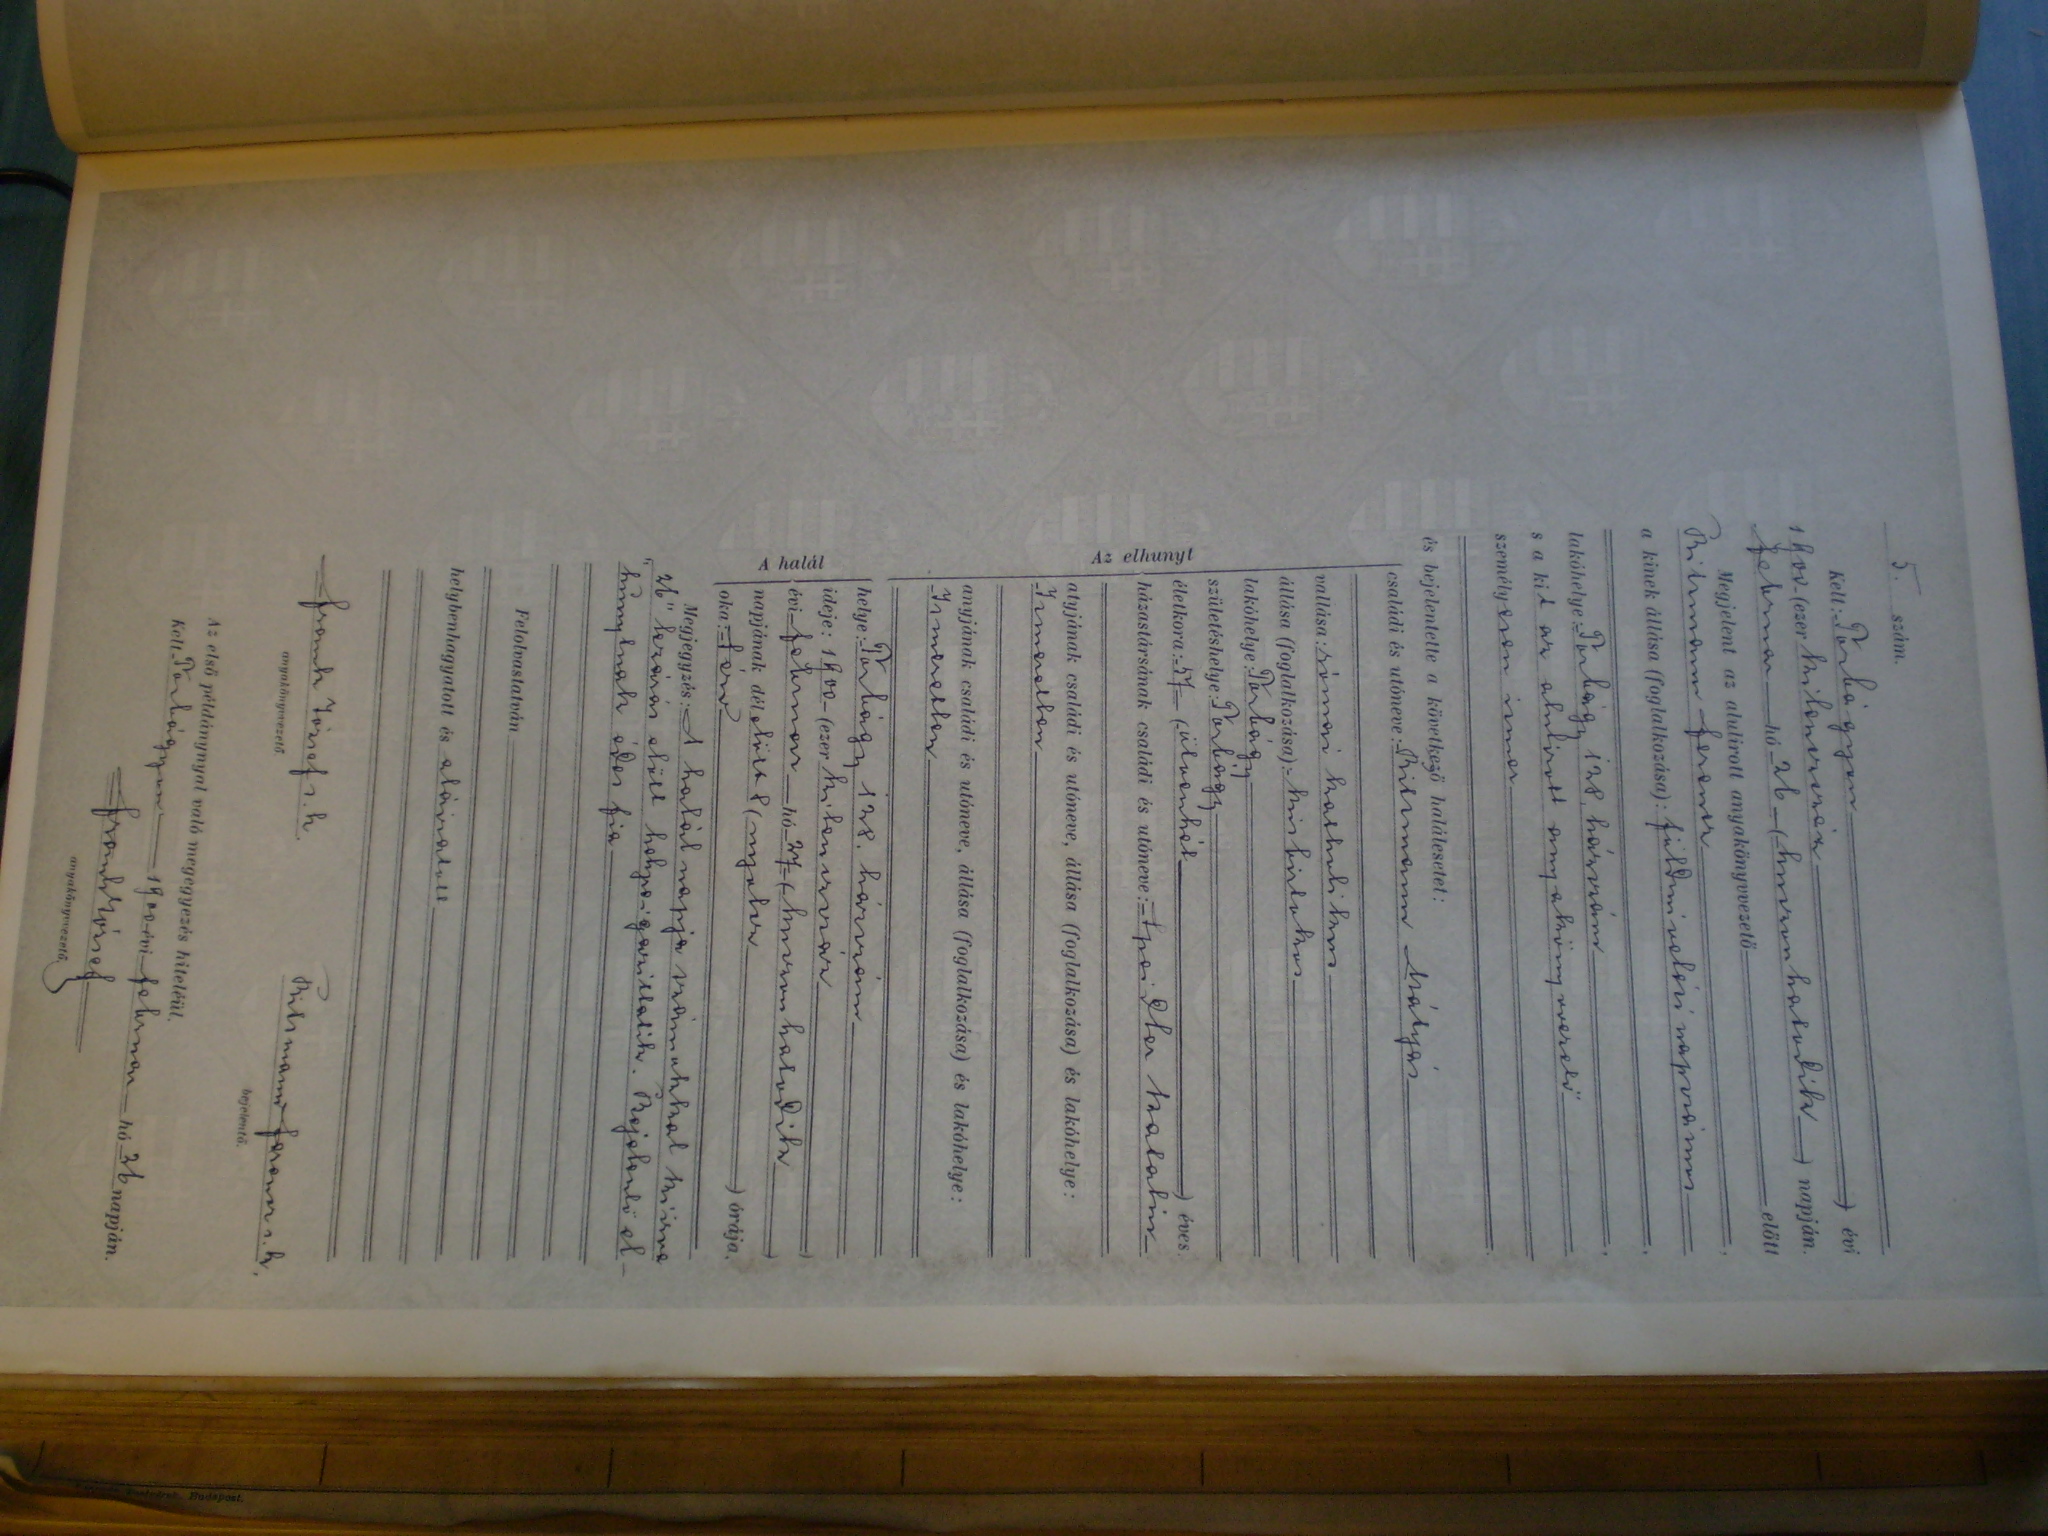 5. szám.
Kelt: Torbágyon ) évi
1900 (ezer kilenczszáz
február hó 26 (huszonhatodik ) napján.
Megjelent az alulírott anyakönyvezető előtt
Ritzmann Ferencz ,
a kinek állása (foglalkozása): földmivelési napszámos ,
lakóhelye: Torbágy 128. házszám ,
s a kit az alulirott anyakönyvvezető
személyesen ismer .
és bejelentette a következő halálesetet:
Az elhunyt
családi és utóneve: Ritzmann Mátyás
vallása: római katholikus
állása (foglalkozása): kisbirtokos
lakóhelye: Torbágy
születéshelye: Torbágy
életkora: ) éves.
házastársának családi és utóneve: Katalin
atyjának családi és utóneve, állása (foglalkozása) és lakóhelye:
Ismeretlen
anyjának családi és utóneve, állása (foglalkozása) és lakóhelye:
Ismeretlen
A halál
helye: Torbágy 128. házszám
ideje: 1900 (ezer kilenczszáz
évi február hó (huszonhatodik )
napjának délelőtt 8 (nyolcz ) órája.
oka:
Megjegyzés: A halál napja számánál
"26" előtt kiigazíttatik. Bejelentő el-
hunytnak édes fia
Felolvastatván
helybenhagyatott és aláiratott
Frank József s. k. Ritzmann Ferencz s. k.
anyakönyvezető. bejelentő.
Az első példánynyal való megegyezés hiteléül.
Kelt Torbágyon 1900 évi február hó 26 napján.
Frank József
anyakönyvezető.
Budapest.